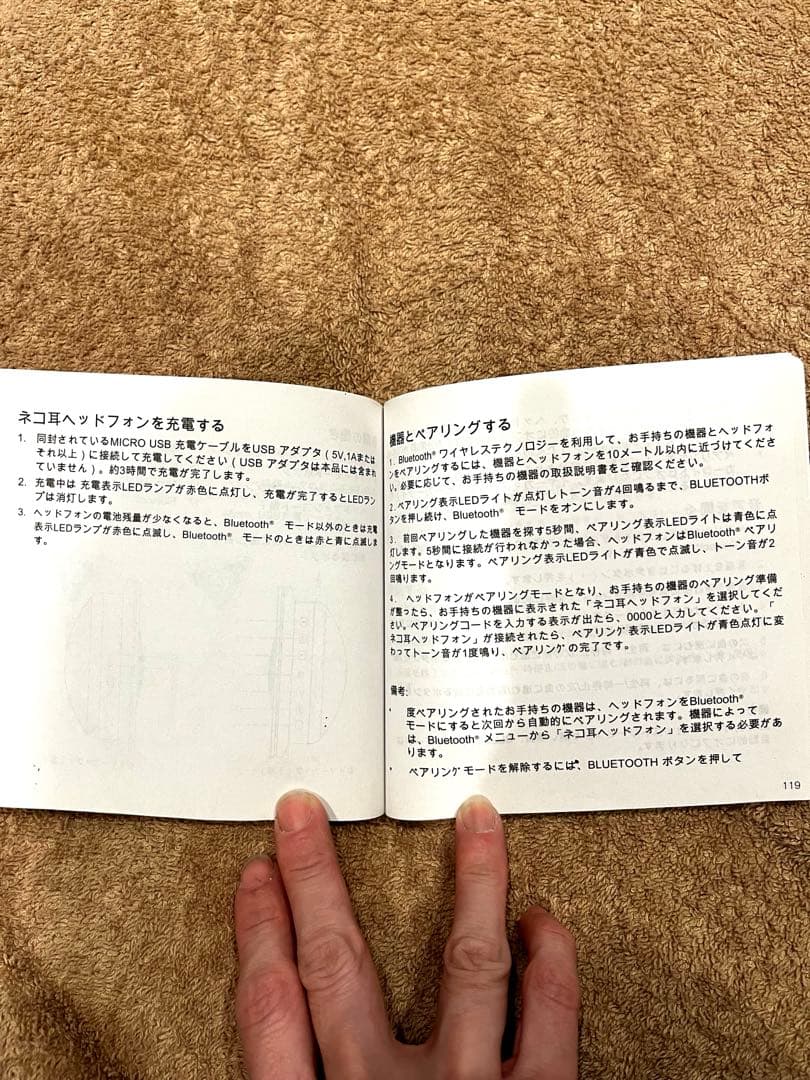 ネコ耳ヘッドフォンを充電する
1. 同封されているMICRO USB 充電ケーブルをUSB アダプタ ( 5V,1Aまたは
それ以上 ) に接続して充電してください ( USB アダプタは本品には含まれ
ていません ) 。約3時間で充電が完了します。
2. 充電中は 充電表示LEDランプが赤色に点灯し、充電が完了するとLEDラン
プは消灯します。
3. ヘッドフォンの電池残量が少なくなると、Bluetooth® モード以外のときは充電
表示LEDランプが赤色に点滅し、Bluetooth® モードのときは赤と青に点滅しま
す。
機器とペアリングする
1. Bluetooth® ワイヤレステクノロジーを利用して、お手持ちの機器とヘッドフォ
ンをペアリングするには、機器とヘッドフォンを10メートル以内に近づけてくださ
い。必要に応じて、お手持ちの機器の取扱説明書をご確認ください。
2. ペアリング表示LEDライトが点灯しトーン音が4回鳴るまで、BLUETOOTHボ
タンを押し続け、Bluetooth® モードをオンにします。
3. 前回ペアリングした機器を探す5秒間、ペアリング表示LEDライトは青色に点
灯します。5秒間に接続が行われなかった場合、ヘッドフォンはBluetooth® ペアリ
ングモードとなります。ペアリング表示LEDライトが青色で点滅し、トーン音が2
回鳴ります。
4. ヘッドフォンがペアリングモードとなり、お手持ちの機器のペアリング準備
が整ったら、お手持ちの機器に表示された「ネコ耳ヘッドフォン」を選択してくだ
さい。ペアリングコードを入力する表示が出たら、0000と入力してください。「
ネコ耳ヘッドフォン」が接続されたら、ペアリング表示LEDライトが青色点灯に変
わってトーン音が1度鳴り、ペアリングの完了です。
備考:
• 度ペアリングされたお手持ちの機器は、ヘッドフォンをBluetooth®
モードにすると次回から自動的にペアリングされます。機器によって
は、Bluetooth® メニューから「ネコ耳ヘッドフォン」を選択する必要があ
ります。
• ペアリングモードを解除するには、BLUETOOTH ボタンを押して
119